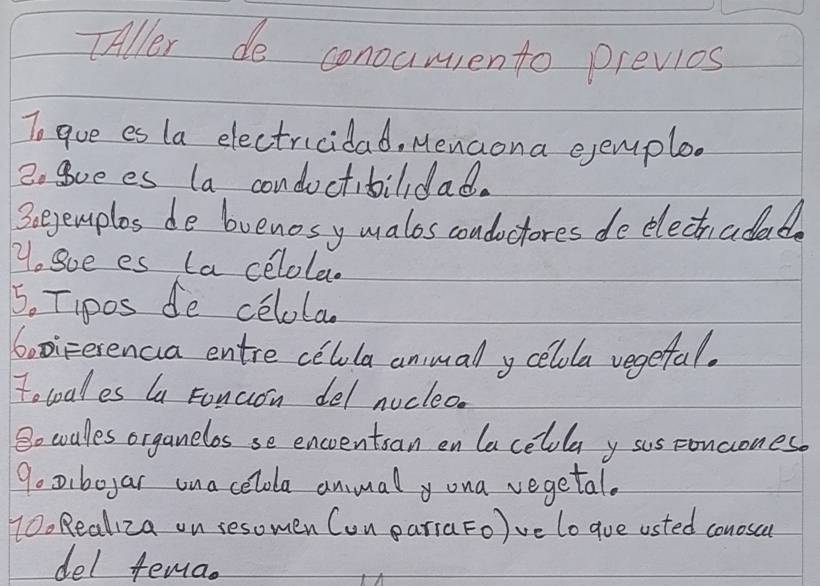 TAller de conocimiento previos
1. que es la electricidad. Menciona ejemplo.
2. Que es la conductibilidad.
3. ejemplos de buenos y malos conductores de electricidad.
4. Que es la célula.
5. Tipos de célula.
6. Diferencia entre célula animal y célula vegetal.
7. cual es la Función del nucleo.
8. cuales organelos se encuentran en la celula y sus Funciones.
9. Dibujar una celula animal y una vegetal.
10. Realiza un resumen (un parraFo) de lo que usted conosca
del tema.